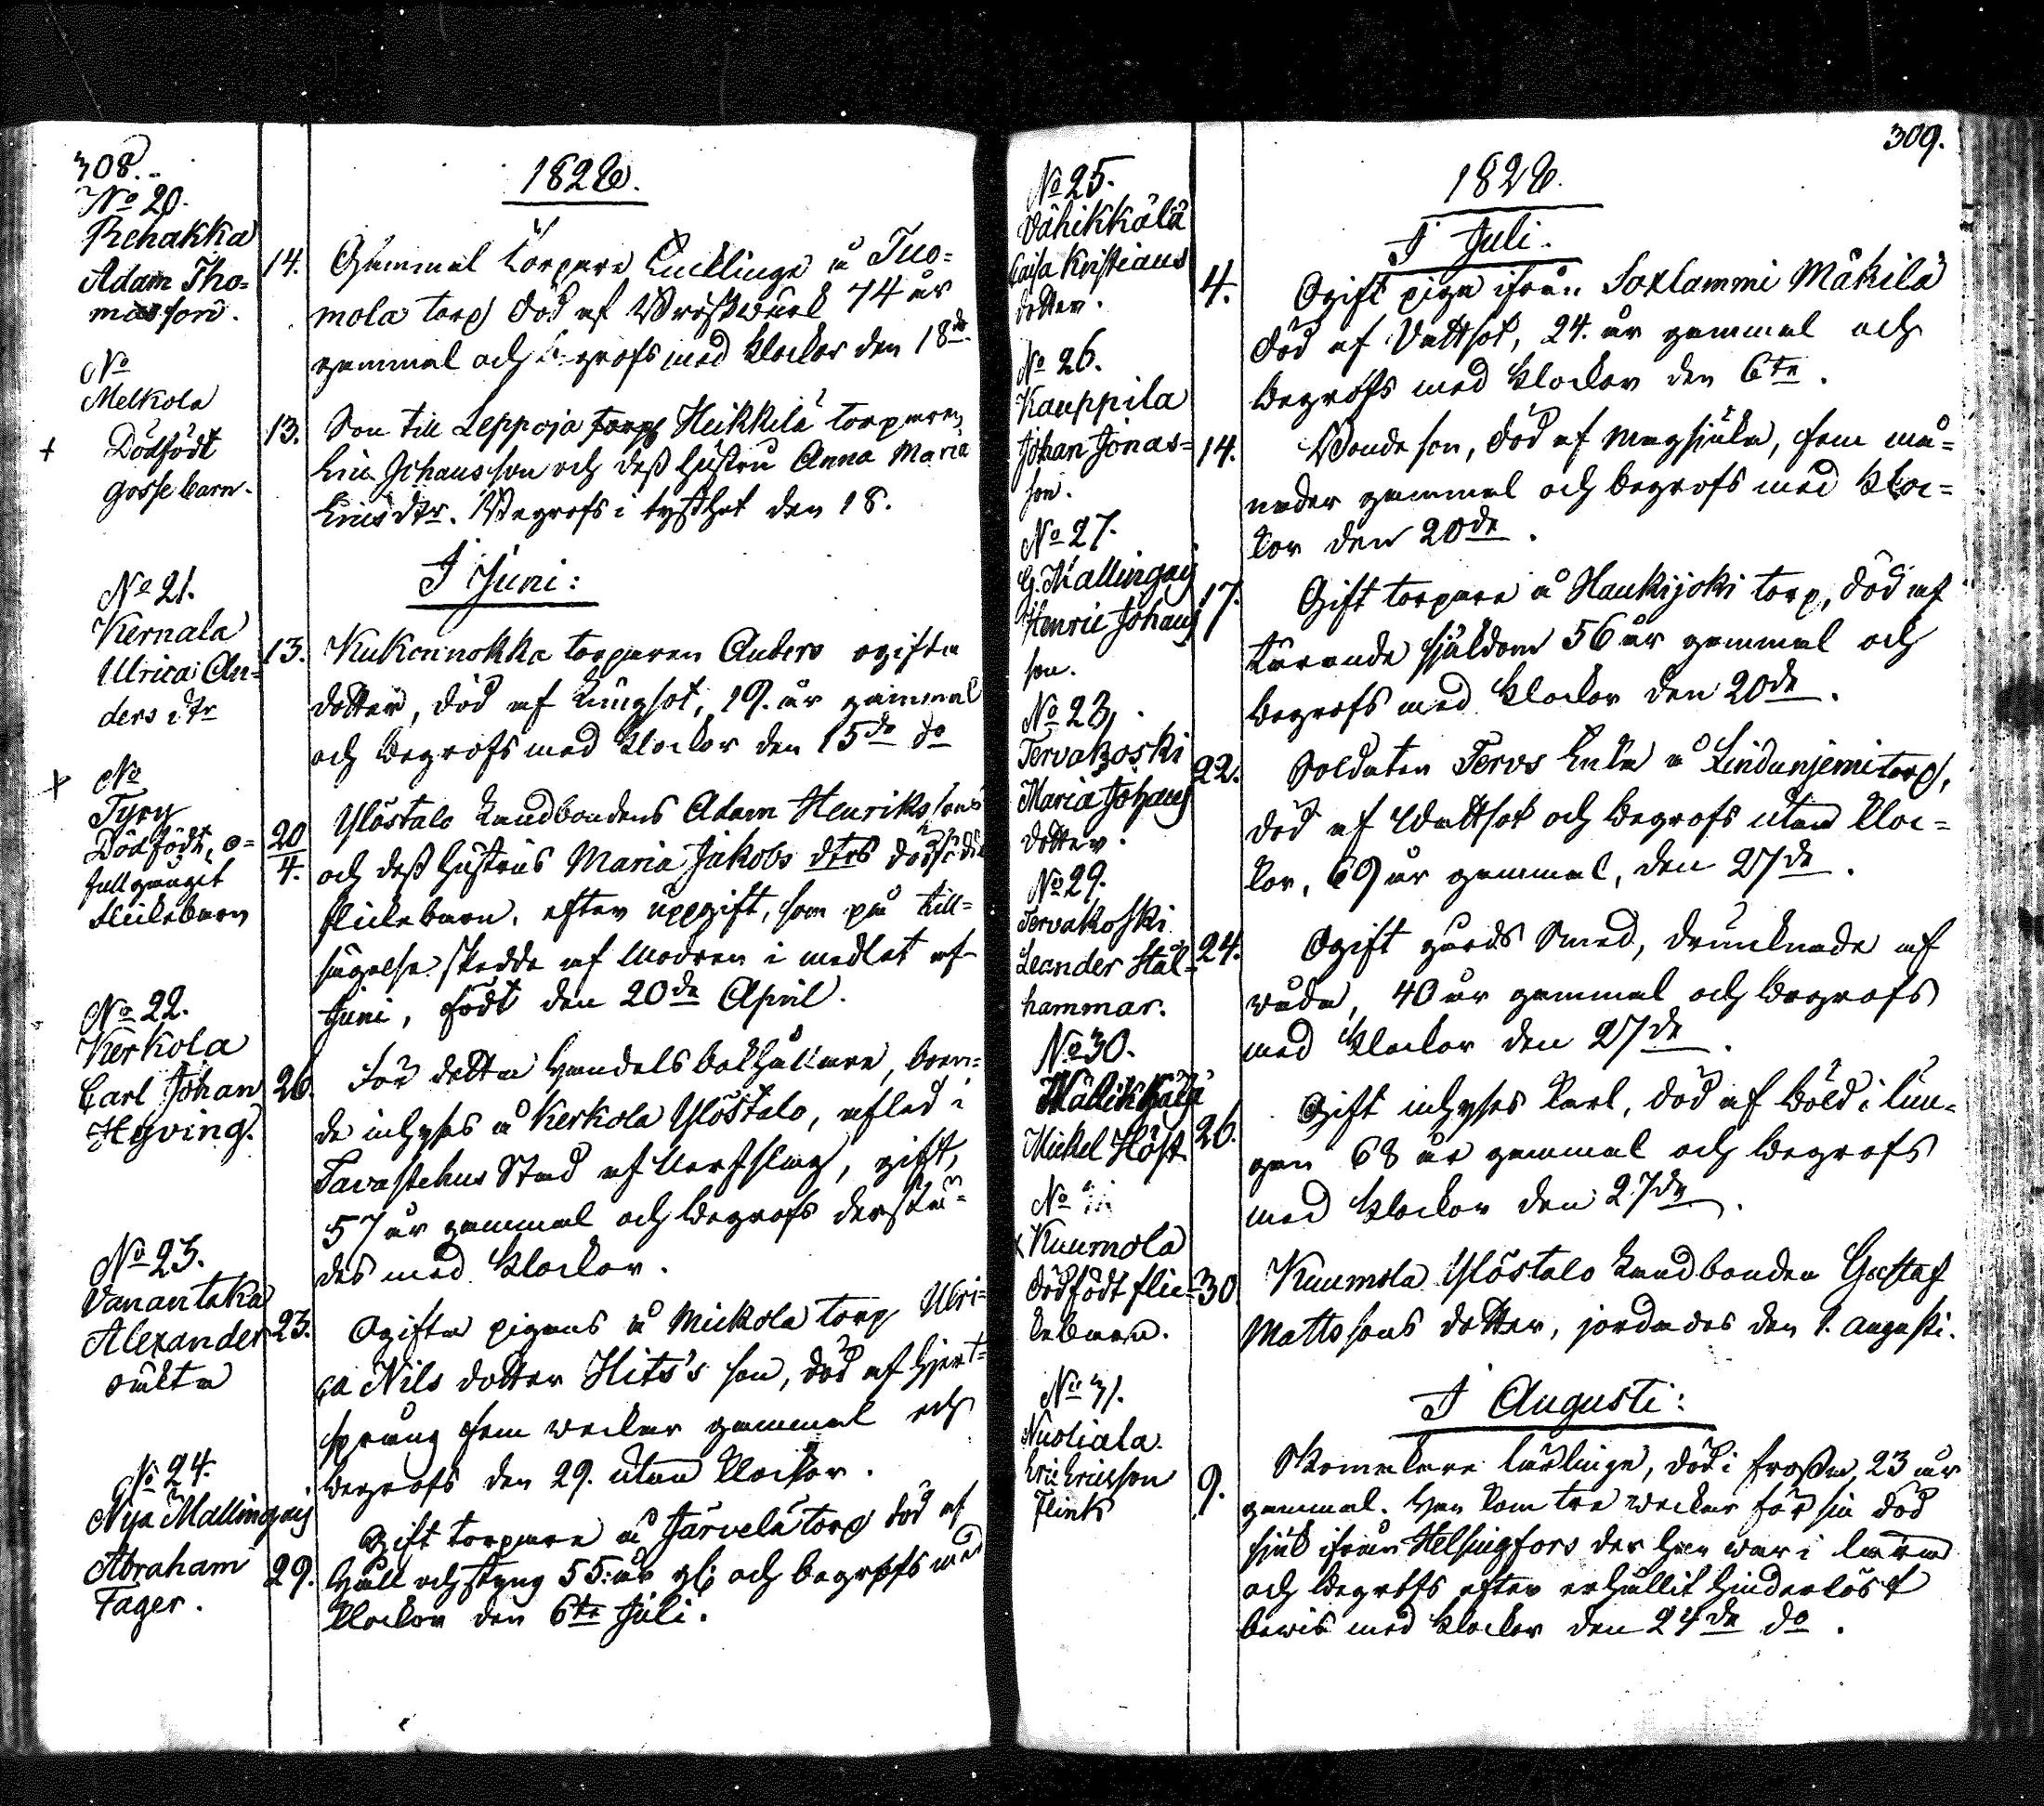 308.
1826.
No 20.
Rehakka
Adam Tho=
masson.
14. Gammal torpare Enklinge å Tuo=
mola torp död af Bröstwärk 74 år
gammal och begrofs med klockor den 18de
No
Melkola
Dödfödt
gosse barn.
13. Son till Leppoja torp Heikkilä torparen
Eric Johansson och dess hustru Anna Maria
Ericsdtr. Begrofs i tysthet den 18.
I Juni:
No 21.
Kernala
Ulrica An=
ders dtr
13. Kukonnokka torparen Anders ogifta
dotter, död af lungsot, 19. år gammal
och begrofs med klockor den 15de do
No
Tyry
Dödfödt, o=
fullgånget
flickebarn
20/4. Ylöstalo landbondens Adam Henrikssons
och dess hustrus Maria Jakobs dtrs dödfödda
flickebarn, efter uppgift, som på till=
sägelse skedde af modren i medlet af
Juni, födt den 20de April.
No 22.
Kerkola
Carl Johan
Hyving.
26. För detta handelsbokhållare, boen=
de inhyses å Kerkola Ylöstalo, afled i
Tavastehus Stad af Nerfslag, gift,
57 år gammal och begrofs derstä=
des med klockor.
No 23.
Vanantaka
Alexander
oäkta
23. Ogifta pigans å Mickola torp Ulri=
ca Nils dotter Hits's son, död af hjert=
språng fem weckor gammal och
begrofs den 29. utan klockor.
No 24.
Nya Mallingais
Abraham
Fager.
29. Gift torpare å Järvelä torp död af
håll och styng 55: år gl: och begrofs med
klockor den 6te Juli.
309.
1826.
I Juli.
No 25.
Vähikkälä
Caisa Kristians
dotter.
4. Ogift piga ifrån Soxlammi Mäkilä
död af Vattsot, 24. år gammal och
begrofs med klockor den 6te.
No 26.
Kauppila
Johan Jonas=
son.
14. Bonde son, död af magsjuka, fem må=
nader gammal och begrofs med kloc=
kor den 20de.
No 27.
G. Mallingais
Henric Johans
son.
17. Gift torpare å Haukijoki torp, död af
tärande sjukdom 56 år gammal och
begrofs med klockor den 20de.
No 28.
Tervakoski
Maria Johans
dotter.
22. Soldaten Tervs Enka å Lindunjemi torp,
död af Wattsot och begrofs utan kloc=
kor, 69 år gammal, den 27de.
No 29.
Tervakoski
Leander Stål=
hammar.
24. Ogift gårds Smed, drunknade af
wåda, 40 år gammal och begrofs
med klockor den 27de.
No 30.
Wähikkälä
Mickel Höst
26. Gift inhyses karl, död af böld i lun=
gan 68 år gammal och begrofs
med klockor den 27de.
No
Kuumola
dödfödt flic=
kebarn.
30 Kuumola Ylöstalo landbonden Gustaf
Mattssons dotter, jordades den 1. augusti.
I Augusti:
No 31.
Nuoliala
Eric Ericsson
Flink
9. Skomakare lärlinge, död i frossa, 23 år
gammal. Han kom tre weckor för sin död
sjuk ifrån Helsingfors der han war i lära
och begrofs efter erhållit hinderlöst
bewis med klockor den 24de do.